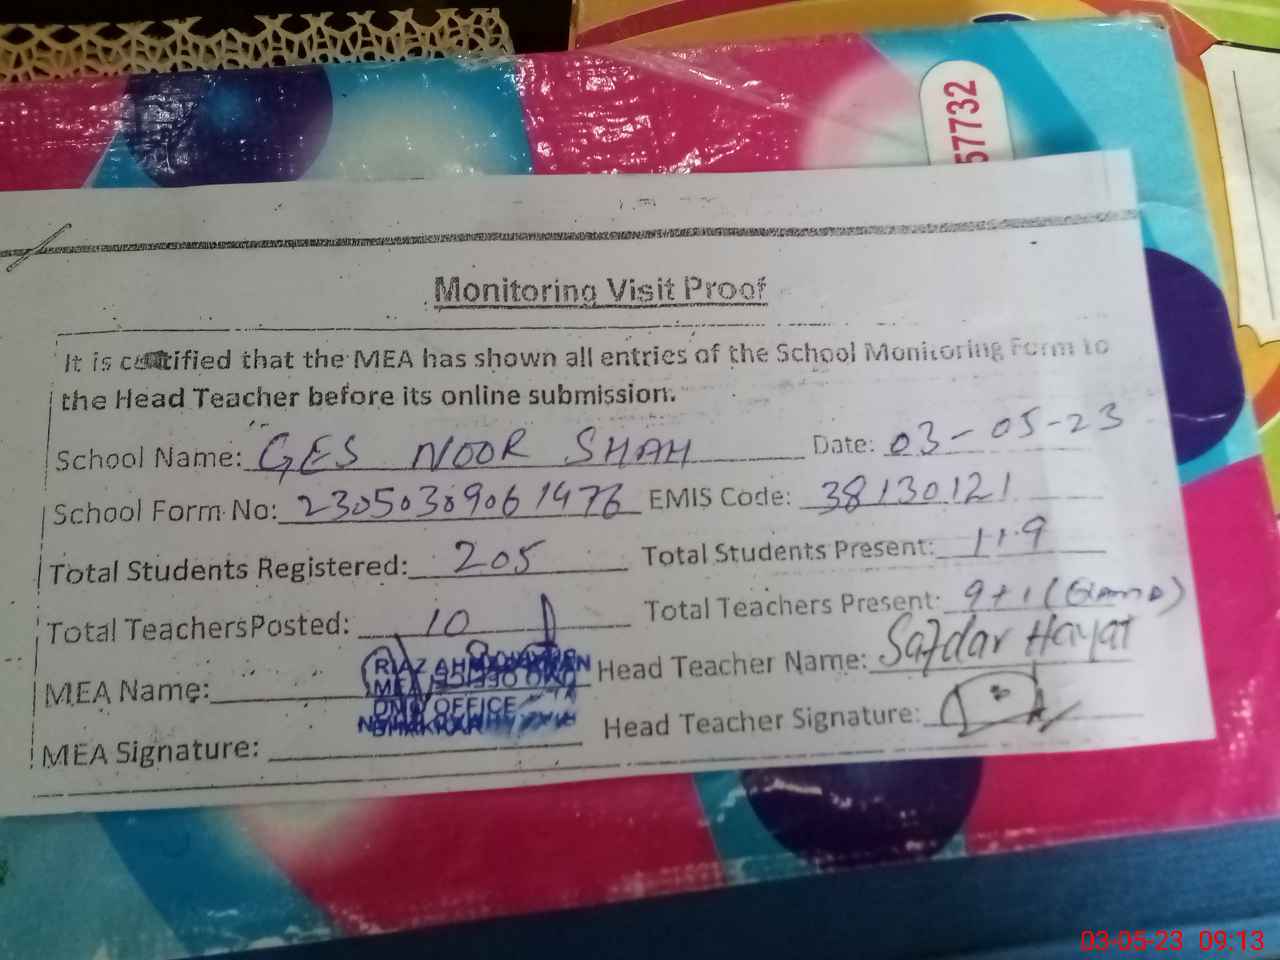 57732
Monitoring Visit Proof
It is certified that the MEA has shown all entries of the School Monitoring Form to
the Head Teacher before its online submission.
School Name: GES NOOR SHAH Date: 03-05-23
School Form No: 23050389061476 EMIS Code: 38130121
Total Students Registered: 205 Total Students Present: 119
Total Teachers Posted: 10 Total Teachers Present: 9+1
MEA Name: RIAZ Head Teacher Name: Safdar Hayat
DMO OFFICE
BHAKKAR
MEA Signature: Head Teacher Signature:
03-05-23 09:13